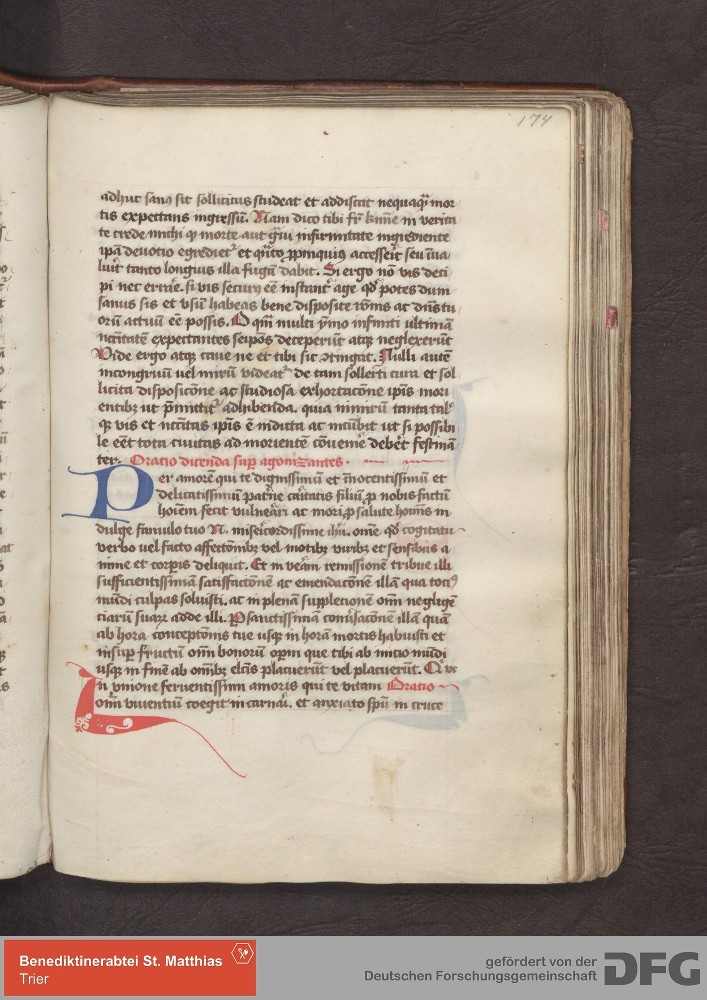 174
adhuc sanus sit sollicitus studeat et addiscat nequaqᷓ mor
tis expectans ingressū. Nam dico tibi fr̄ kīme in verita
te crede michi qꝫ morte aut gᷓui infirmitate ingrediente
ipā deuotio egrediet᷑ et qn̄to ꝓpinquiꝰ accesserit seu īua
luīt tanto longius illa fugā dabit. Si ergo nō vis deci
pi nec erraē. si vis securꝰ eē instant᷑ age qd̓ potes dum
sanus sis et vsū habeas bene disposite rōnis ac dn̄s tu
orū actuū eē possis. O qm̄ multi ymo infiniti ultimā
nc̄citatē expectantes seip̄os deceperūt atqꝫ neglexerūt
Vide ergo atqꝫ caue ne et tibi sic ꝯtingat. Nulli autē
incongruū uel mirū videat᷑ de tam sollerti cura et sol
licita disposicōne ac studiosa exhortacōne ip̄is mori
entibꝫ ut p̄mittit᷑ adhibenda. quia nimirū tanta tal᷒
qꝫ vis et nc̄citas ip̄is ē īducta ac incūbit ut si possibi
le eēt tota ciuitas ad morientē cōuenīe debēt festinā
ter. Oratio dicenda sup̄ agonizantes.
Per amorē qui te dignissimū et īnocentissimū et
delicatissimū pat̄ne cā̄itatis filiū, ꝓ nobis factū
hoīem fecit vulnerari ac mori, ꝓ salute hoīnis in
dulge famulo tuo N. misericordissime ihū. omē qd̓ cogitatu
verbo uel facto affectōnibꝫ vel motibꝫ viribꝫ et sensibus a
nime et corp̄is deliquit. Et in verā remissionē tribue illi
sufficientissimā satisfactōnē ac emendacōnē illā qua tociꝰ
mūdi culpas soluisti. at in plenā supplecionē om̄ negligē
ciarū suaꝝ adde illi. ꝑsanctissimā conūsacōnē illā quā
ab hora conceptōnis tue usqꝫ in horā mortis habuisti et
insuꝑ fructū om̄ bonorū oꝑum que tibi ab inicio mūdi
usqꝫ in finē ab om̄ibꝫ elc̄is placuerūt vel placuerūt. Q vi
In vnione feruentissimi amoris qui te vitam Oratio
om̄ viuentiū coegit incarnāi. et anxiato sp̄u in cruce
Benediktinerabtei St. Matthias
Trier
gefördert von der
Deutschen Forschungsgemeinschaft
DFG